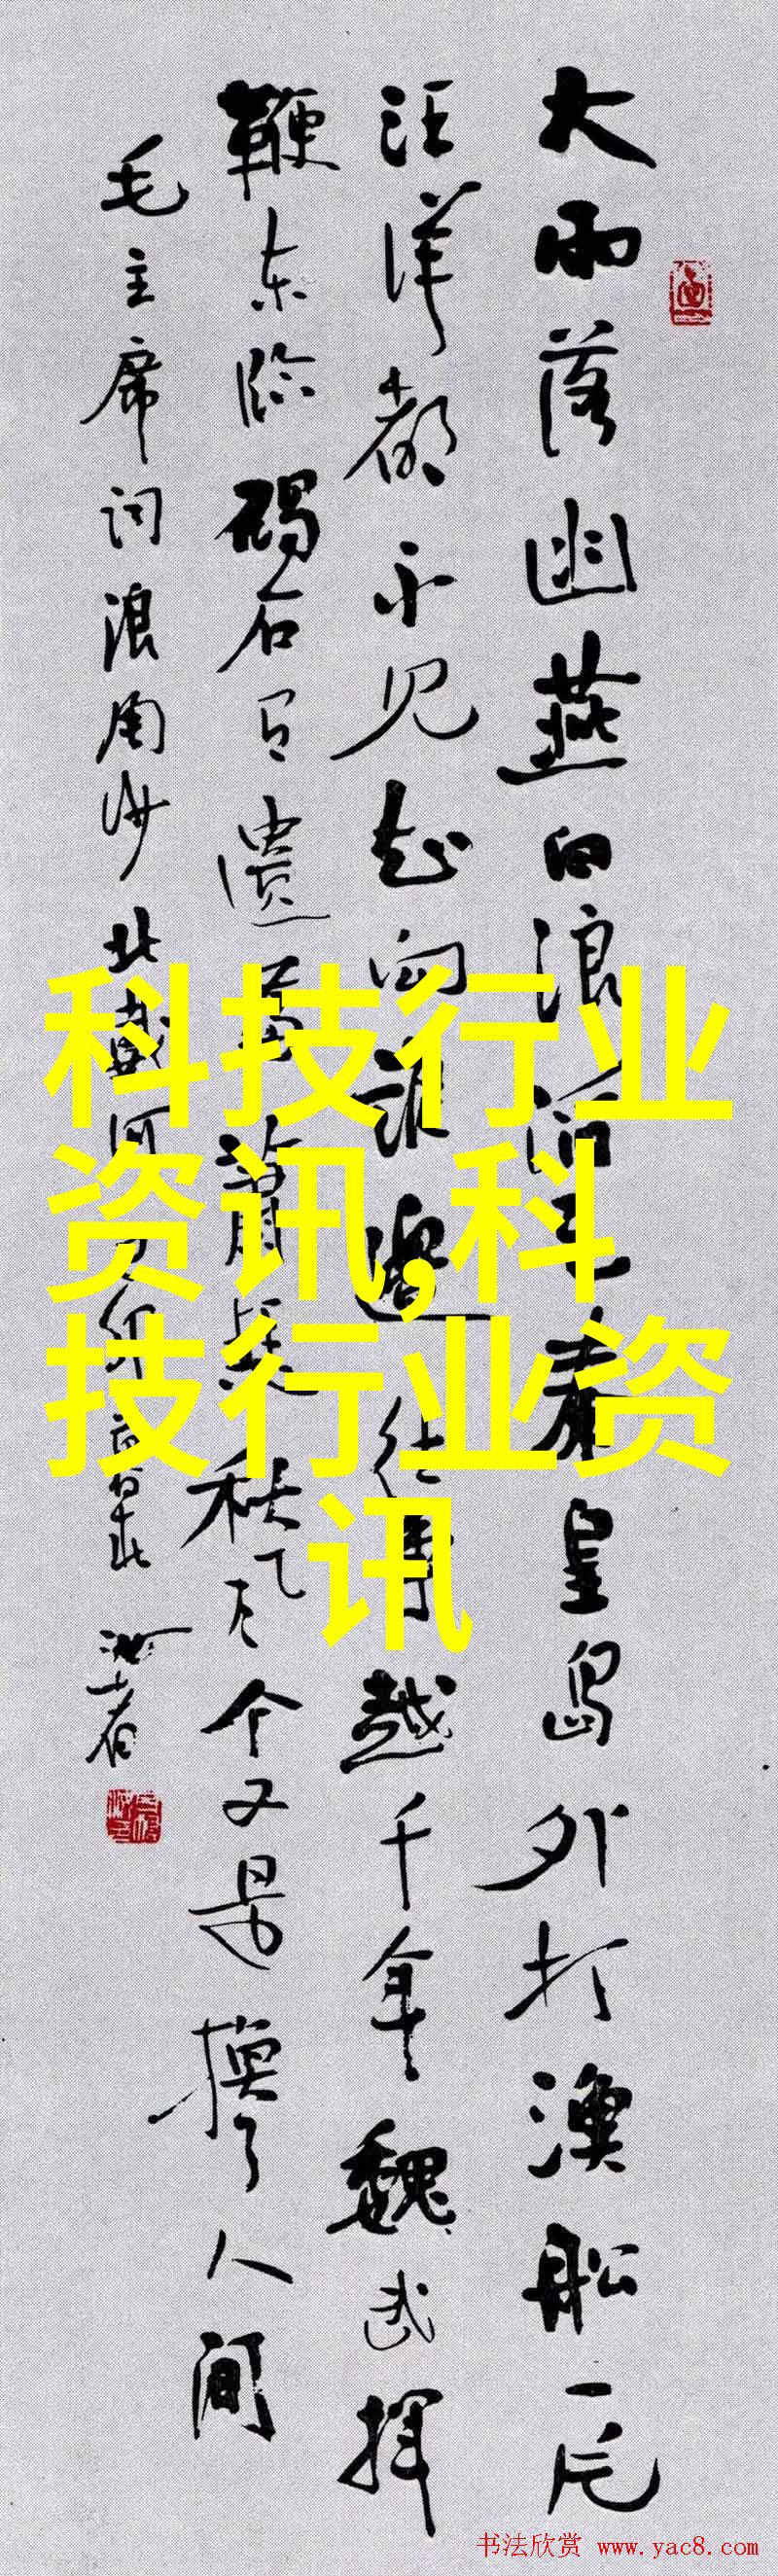 大雨落幽燕白浪滔天秦皇島外打漁船一片
汪洋都不见知向谁邊往事越千年魏武揮
鞭东临碣石有遗篇萧瑟秋风今又是换了人间
毛主席词浪淘沙北戴河丁卯
科技行业
资讯,科
技行业资
讯
书法欣赏 www.yac8.com